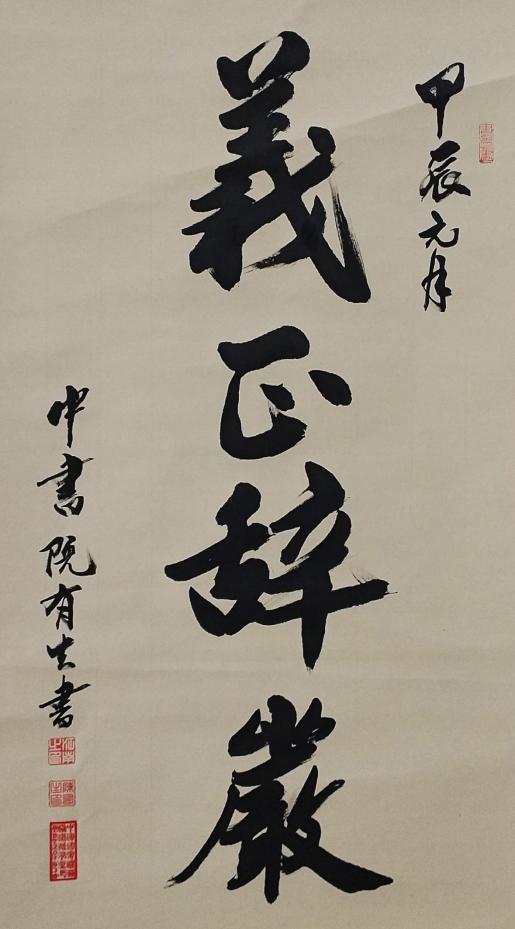 甲辰元月
義正辞嚴
中書院有生書